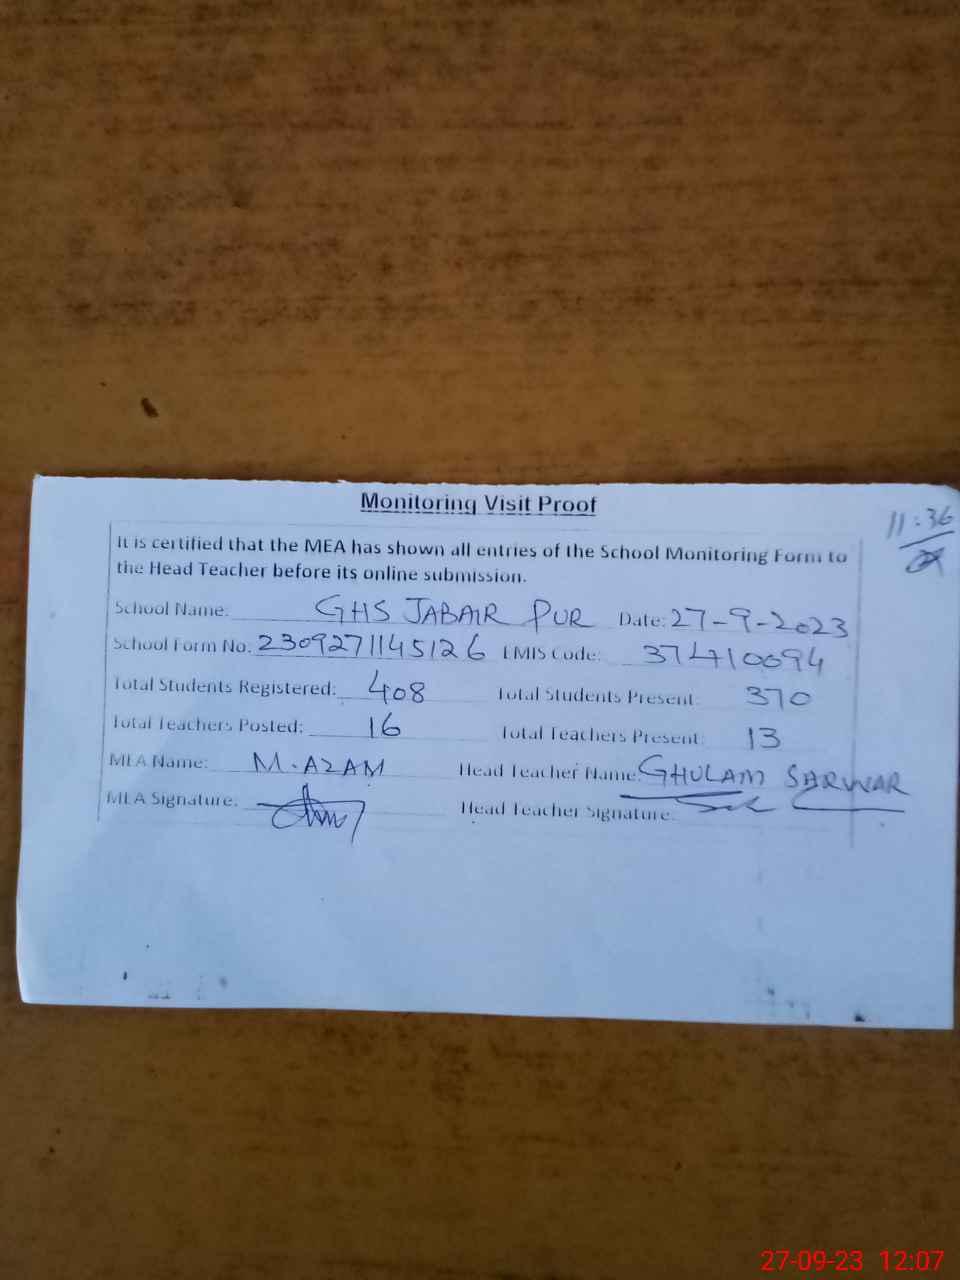 Monitoring Visit Proof
11:36
It is certified that the MEA has shown all entries of the School Monitoring Form to
the Head Teacher before its online submission.
School Name: GHS JABAIR PUR Date: 27-9-2023
School Form No. 2309271145126 EMIS Code: 37410094
Total Students Registered: 408 Total Students Present: 370
Total Teachers Posted: 16 Total Teachers Present: 13
MEA Name: M.AZAM Head Teacher Name: GHULAM SARWAR
MEA Signature: Head Teacher Signature:
27-09-23 12:07